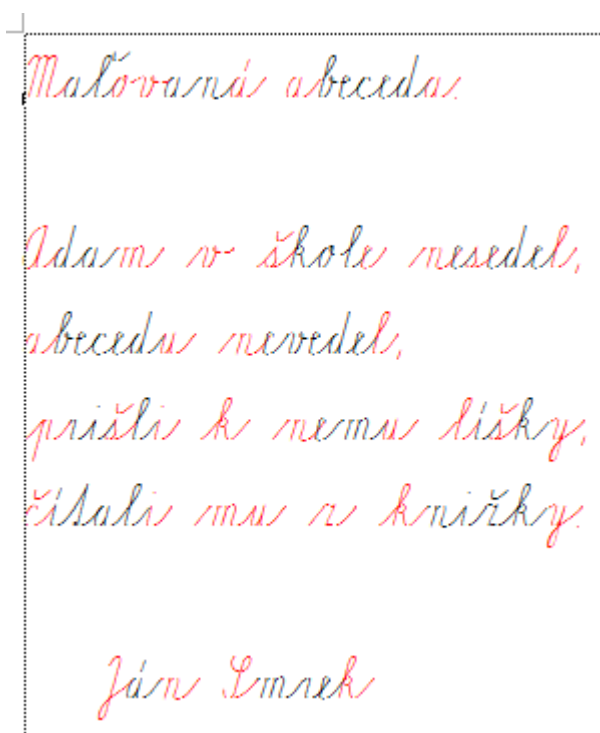 Maľovaná abeceda.
Adam v škole nesedel,
abecedu nevedel,
prišli k nemu líšky,
čítali mu z knižky.
Ján Smrek